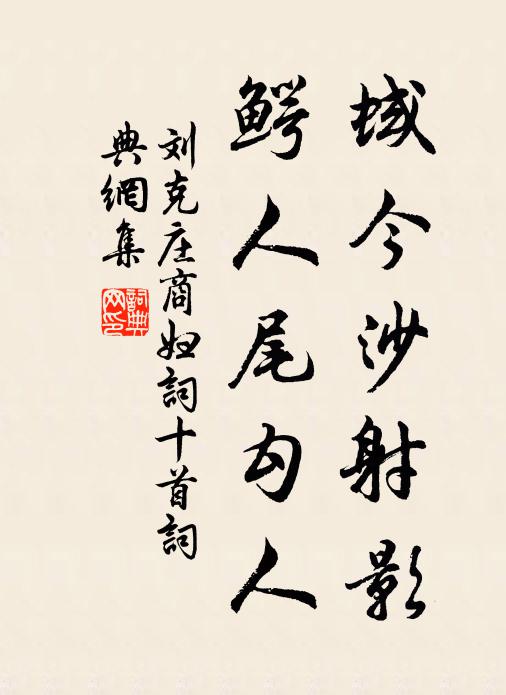 域今沙射影
鳄人尾勾人
刘克庄商妇词十首词
典网集
詞典网印